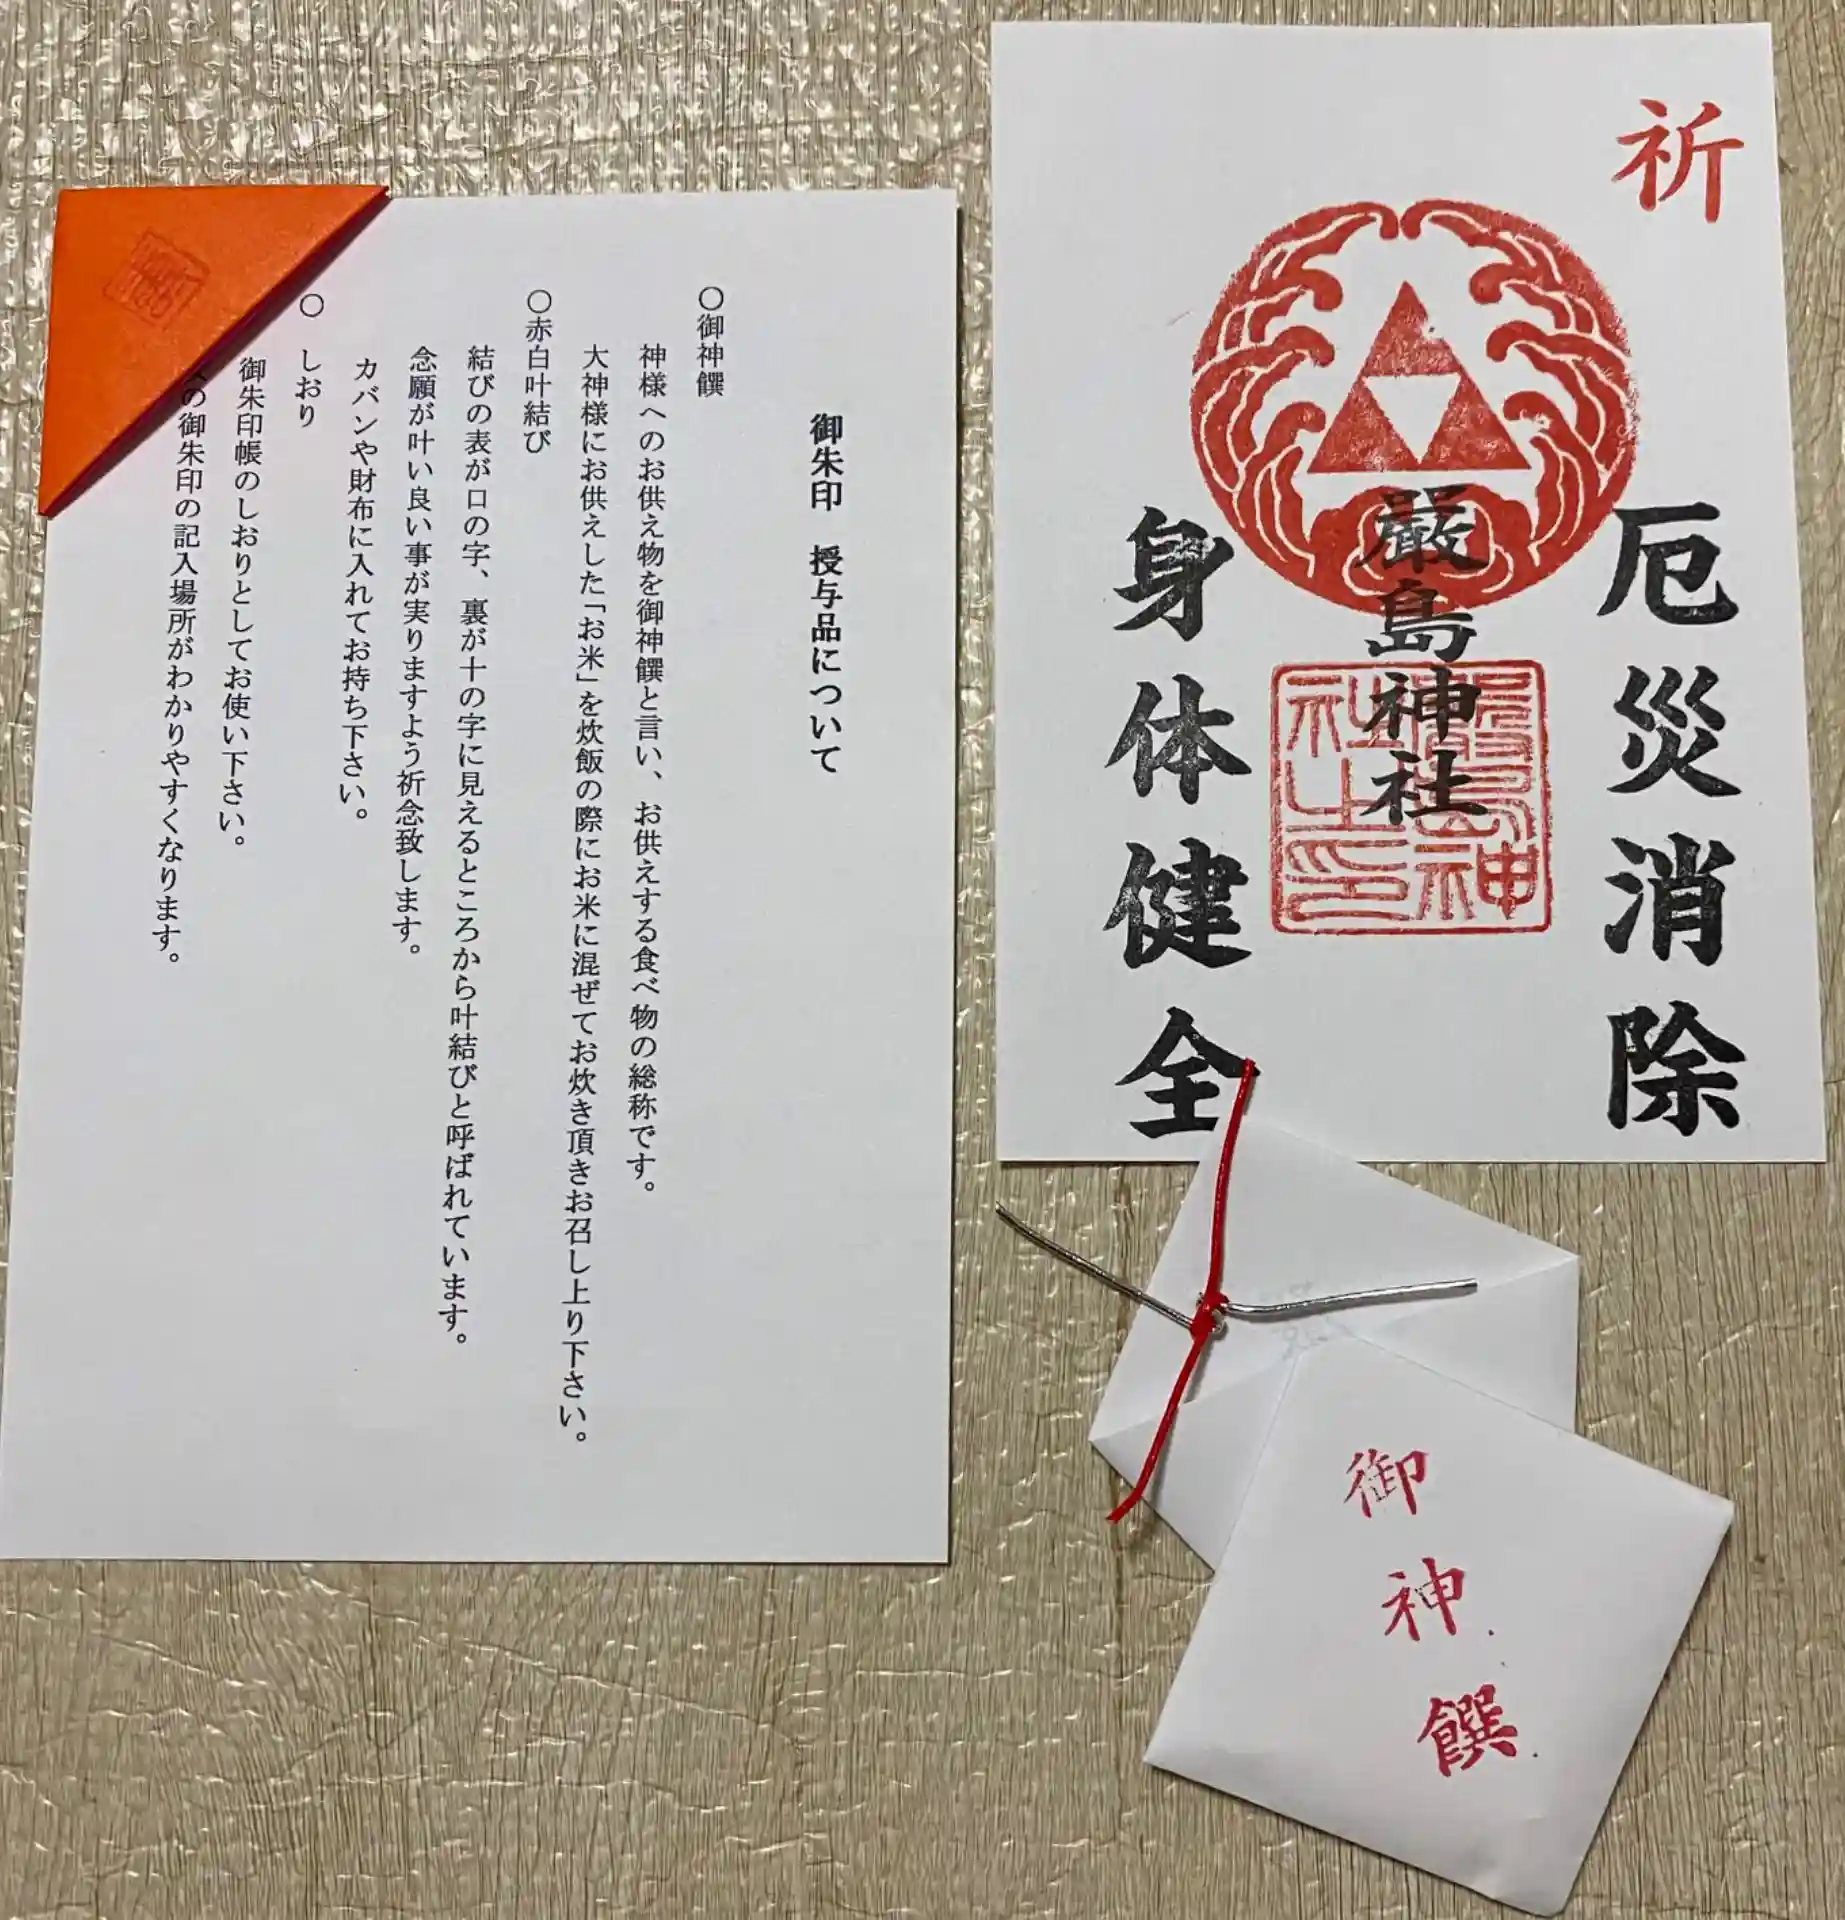 御朱印 授与品について
○御神饌
神様へのお供え物を御神饌と言い、お供えする食べ物の総称です。
大神様にお供えした「お米」を炊飯の際にお米に混ぜてお炊き頂きお召し上り下さい。
○赤白叶結び
結びの表が口の字、裏が十の字に見えるところから叶結びと呼ばれています。
念願が叶い良い事が実りますよう祈念致します。
カバンや財布に入れてお持ち下さい。
○ しおり
御朱印帳のしおりとしてお使い下さい。
の御朱印の記入場所がわかりやすくなります。
祈
厄災消除
嚴島神社
身体健全
嚴島神社之印
御神饌